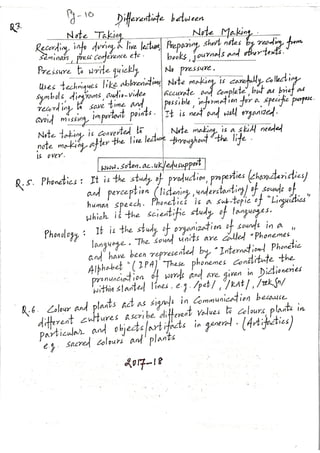 Pg-10
Q3. Differentiate between
Note Taking
Note Making
Recording info during a live lecture,
seminar, press conference etc.
Preparing short notes by reading from
books, journals and other texts.
Pressure to write quickly.
No pressure.
Uses techniques like abbreviation,
symbols, diagrams, audio-video
recording to save time and
avoid missing important points.
Note making is carefully collecting
accurate and complete, but as brief as
possible, information for a specific purpose.
It is neat and well organized.
Note taking is converted to
note making after the live lecture
is over.
Note making is a skill needed
throughout the life.
www.soton.ac.uk/edusupport
Q.5. Phonetics: It is the study of production, properties (characteristics)
and perception (listening, understanding) of sounds of
human speech. Phonetics is a sub-topic of "Linguistics"
which is the scientific study of languages.
Phonology: It is the study of organization of sounds in a
language. The sound units are called "Phonemes"
and have been represented by "International Phonetic
Alphabet" (IPA) These phonemes constitute the
pronunciation of words and are given in Dictioneries
within slanted lines. e.g. /pet/, /kæt/,
Q.6. Colour and plants act as signals in Communication because
different cultures ascribe different values to colours, plants in
particular and objects/artifacts in general. (Artifactics)
e.g. sacred colours and plants
2017-18